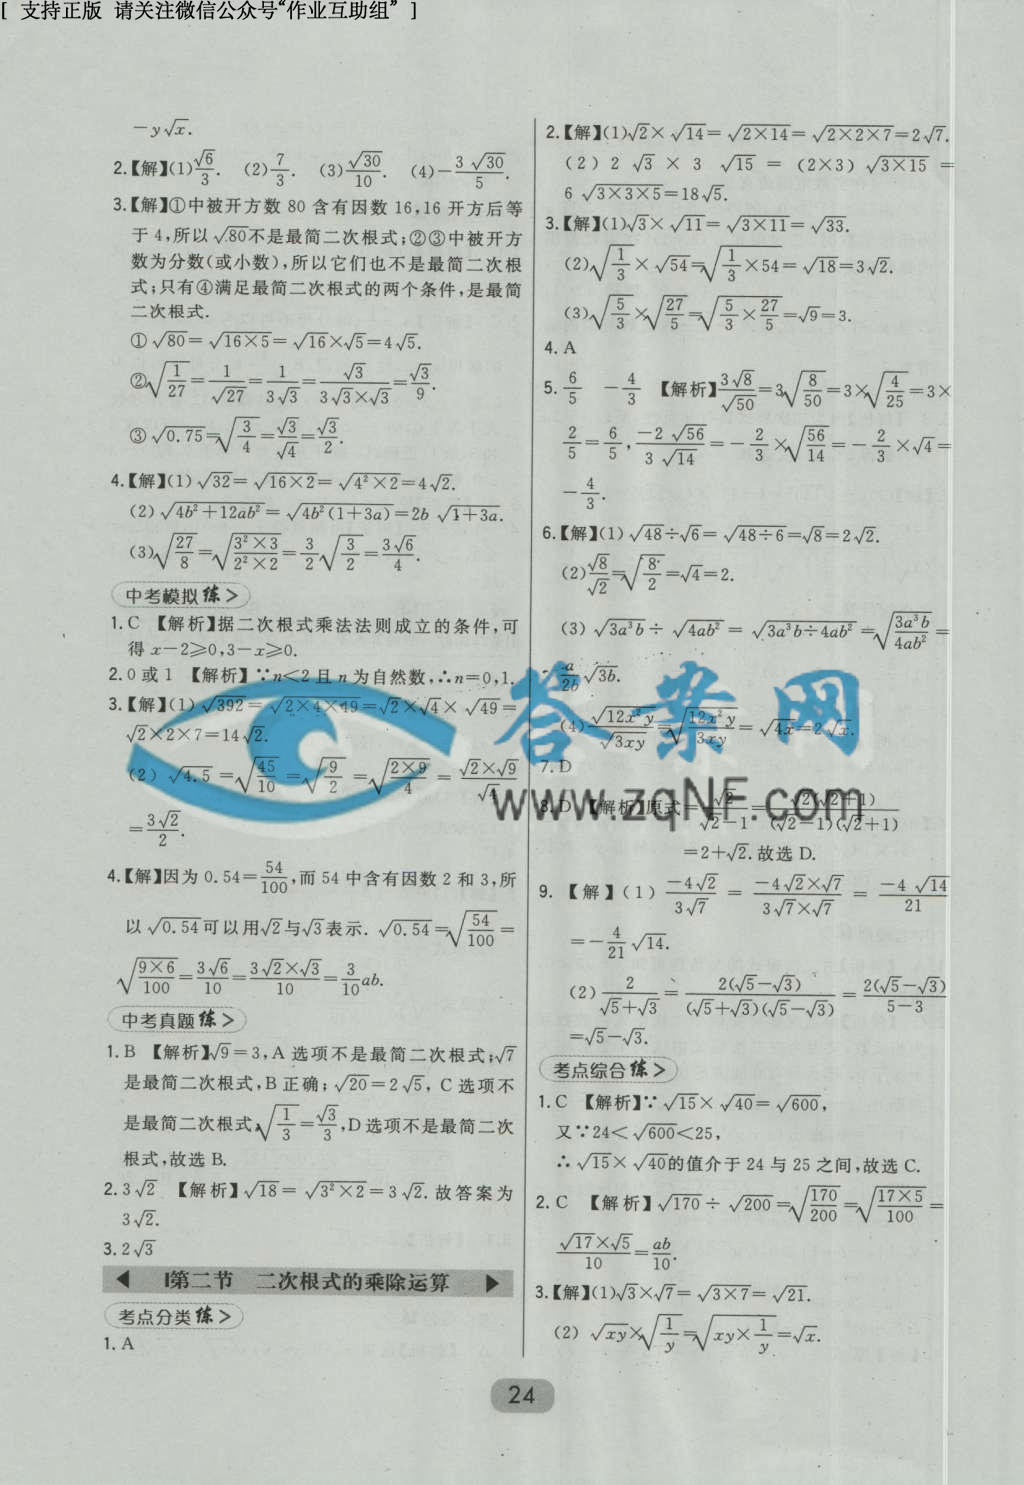 [ 支持正版 请关注微信公众号“作业互助组” ]
－y√x.
2.【解】(1)√6/3. (2)7/3. (3)√30/10. (4)－3√30/5.
3.【解】①中被开方数 80 含有因数 16,16 开方后等
于 4,所以 √80不是最简二次根式;②③中被开方
数为分数(或小数),所以它们也不是最简二次根
式;只有④满足最简二次根式的两个条件,是最简
二次根式.
①√80＝√16×5＝√16×√5＝4√5.
②√(1/27)＝1/√27＝1/3√3＝√3/(3√3×√3)＝√3/9.
③√0.75＝√(3/4)＝√3/√4＝√3/2.
4.【解】(1)√32＝√16×2＝√(4²×2)＝4√2.
(2)√(4b²＋12ab²)＝√(4b²(1＋3a))＝2b√(1＋3a).
(3)√(27/8)＝√((3²×3)/(2²×2))＝3/2√(3/2)＝3√6/4.
中考模拟练>
1.C 【解析】据二次根式乘法法则成立的条件,可
得 x－2≥0,3－x≥0.
2.0 或 1 【解析】∵n<2 且 n 为自然数,∴n＝0,1.
3.【解】(1)√392＝√(2×4×49)＝√2×√4×√49＝
√2×2×7＝14√2.
(2)√4.5＝√(45/10)＝√(9/2)＝√((2×9)/4)＝(√2×√9)/√4
＝3√2/2.
4.【解】因为 0.54＝54/100,而 54 中含有因数 2 和 3,所
以√0.54可以用√2与√3表示.√0.54＝√(54/100)＝
√((9×6)/100)＝3√6/10＝(3√2×√3)/10＝3/10ab.
中考真题练>
1.B 【解析】√9＝3,A 选项不是最简二次根式;√7
是最简二次根式,B 正确;√20＝2√5, C 选项不
是最简二次根式,√(1/3)＝√3/3,D选项不是最简二次
根式,故选 B.
2.3√2 【解析】√18＝√(3²×2)＝3√2.故答案为
3√2.
3.2√3
第二节 二次根式的乘除运算
考点分类练>
1.A
2.【解】(1)√2×√14＝√(2×14)＝√(2×2×7)＝2√7.
(2)2√3×3√15＝(2×3)√(3×15)＝
6√(3×3×5)＝18√5.
3.【解】(1)√3×√11＝√(3×11)＝√33.
(2)√(1/3)×√54＝√(1/3×54)＝√18＝3√2.
(3)√(5/3)×√(27/5)＝√(5/3×27/5)＝√9＝3.
4.A
5.6/5 －4/3 【解析】3√8/√50＝3√(8/50)＝3×√(4/25)＝3×
2/5＝6/5,－2√56/3√14＝－2/3×√(56/14)＝－2/3×√4＝
－4/3.
6.【解】(1)√48÷√6＝√(48÷6)＝√8＝2√2.
(2)√8/√2＝√(8/2)＝√4＝2.
(3)√(3a³b)÷√(4ab²)＝√(3a³b÷4ab²)＝√(3a³b/4ab²)＝
a/2b√3b.
(4)√(12x²y)/√(3xy)＝√(12x²y/3xy)＝√4x＝2√x.
7.D
8.D 【解析】原式＝√2/(√2－1)＝√2(√2＋1)/((√2－1)(√2＋1))
＝2＋√2.故选 D.
9.【解】(1)－4√2/3√7＝(－4√2×√7)/(3√7×√7)＝－4√14/21
＝－4/21√14.
(2)2/(√5＋√3)＝2(√5－√3)/((√5＋√3)(√5－√3))＝2(√5－√3)/(5－3)
＝√5－√3.
考点综合练>
1.C 【解析】∵√15×√40＝√600,
又∵24<√600<25,
∴√15×√40的值介于 24 与 25 之间,故选 C.
2.C 【解析】√170÷√200＝√(170/200)＝√((17×5)/100)＝
(√17×√5)/10＝ab/10.
3.【解】(1)√3×√7＝√(3×7)＝√21.
(2)√xy×√(1/y)＝√(xy×1/y)＝√x.
答案网
www.zqNF.com
24